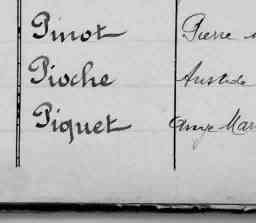 Pinot Pierre
Pioche Aristide
Piquet Ange Mar